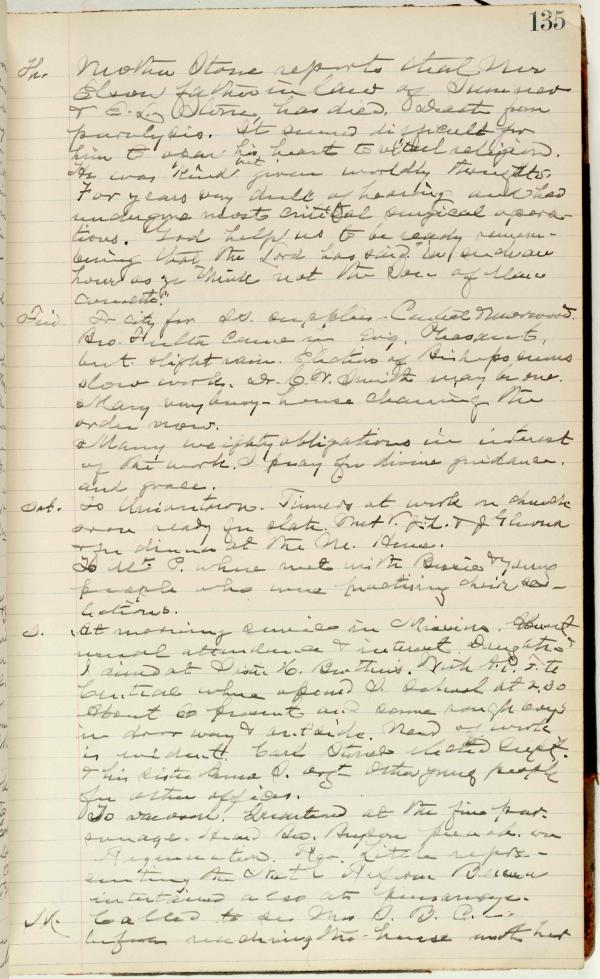 135
Th. Mother Stone reports that Mr
Elson father in law of Sumner
& E. L. Stone, has died. Death from
paralysis. It seemed difficult for
him to open his heart to vital religion.
He was kind but given worldly thoughts.
For years very dull of hearing and had
undergone most critical surgical opera-
tions. God help us to be ready remem-
bering that the Lord has said "in such an
hour as ye think not the Son of Man
cometh."
Frid. To city for S.S. supplies.
Bro. came in Evg. Pleasant,
but slight rain. Election of Bishops seems
slow work. Dr. C. W. Smith may be one.
Mary very busy - house cleaning the
order now.
Many weighty obligations in interest
of the work. I pray for divine guidance
and grace.
Sat. To Uniontown. Tinners at work on church
soon ready for slate. Met V. &
dinner at the M. House.
To Mt. P. where met with Bessie & young
people who were practising their se-
lections.
S. At morning service in Mission. About
usual attendance & interest.
I dined at Sister H. With
Central where opened S. School at 2.30
About 60 present and some rough boys
in door way & outside. Need of work
is evident. Carl Stone elected Supt.
& his sister Anna S. orgt. Other young people
for other offices.
To Quartered at the fine par-
sonage. Heard Bro. preach on
Regeneration. Rev. Little repre-
senting the State Reform Bureau
entertained also at parsonage.
M. Called to see Mrs S. B. C.
before reaching the house met her